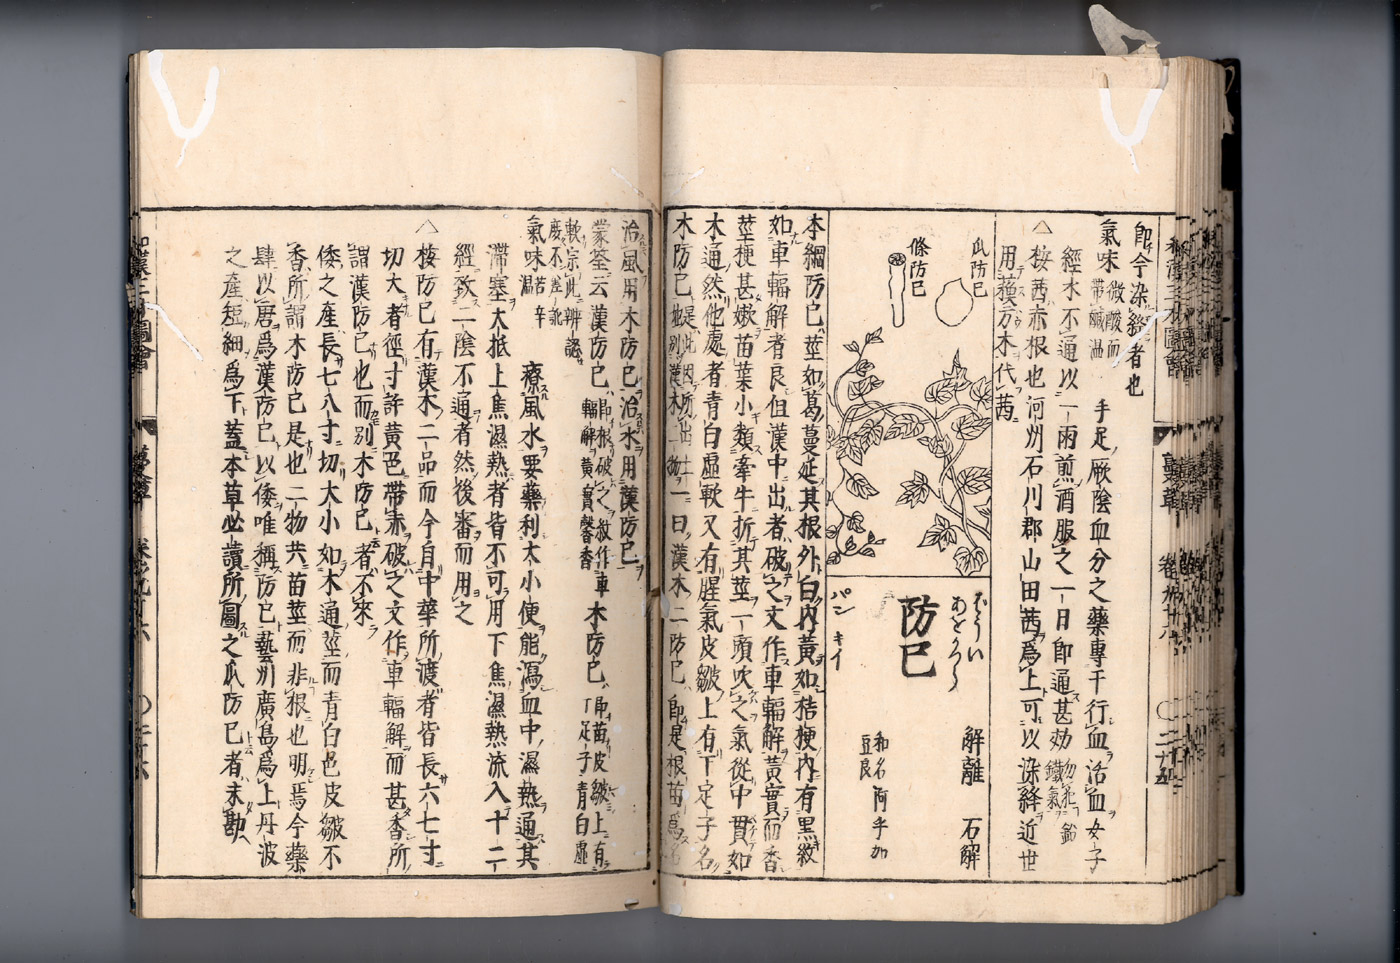 即今染絳者也
氣味 微酸而帶鹹温 手足厥陰血分之藥專于行血活血女子
經水不通以一兩煎酒服之一日即通甚効 勿犯鉛鐵氣
△按茜赤根也河州石川郡山田茜爲上可以染絳近世
用蘓方木代茜
瓜防已
條防已
ばうい
あをかつら
防已
パン キイ
解離 石解
和名阿乎加豆良
本綱防已莖如葛蔓延其根外白内黃如桔梗内有黑紋
如車輻解者良但漢中出者破之文作車輻解黃實而香
莖梗甚嫩苗葉小類牽牛折其莖一頭吹之氣從中貫如
木通然他處者青白虛軟又有腥氣皮皺上有丁足子名
木防已 一曰漢木二防已即是根苗爲名
治風用木防已治水用漢防已
蒙筌云漢防已 即根破之紋作車輻解黃實馨香 木防已 即苗皮皺上有丁足子青白虛軟
氣味 苦辛温 療風水要藥利大小便能瀉血中濕熱通其
滯塞大抵上焦濕熱者皆不可用下焦濕熱流入十二
經致二陰不通者然後審而用之
△按防已有漢木二品而今自中華所渡者皆長六七寸
切大者徑寸許黃色帶赤破之文作車輻解而甚香所
謂漢防已也而別木防已者不來
倭之產長七八寸切大小如木通莖而青白色皮皺不
香所謂木防已是也二物共苗莖而非根也明焉今藥
肆以唐爲漢防已以倭唯稱防已藝州廣島爲上丹波
之產短細爲下蓋本草必讀所圖之瓜防已者未勘